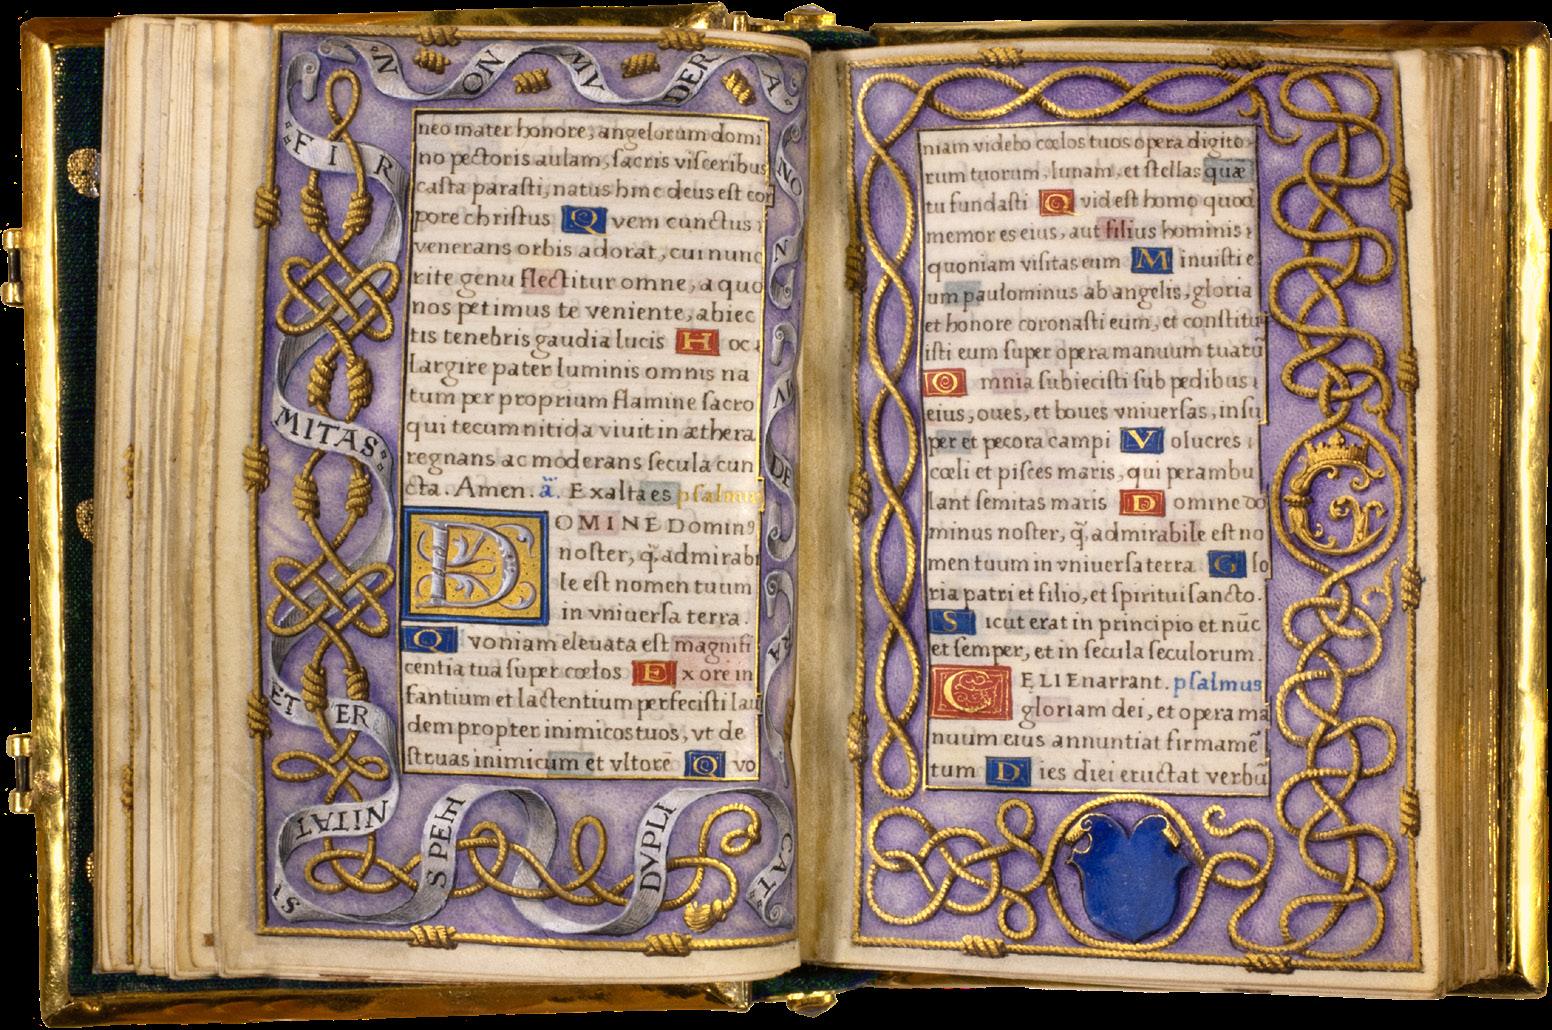 FIR
MITAS
ET ER
NITAT
IS
SPEM
DVPLI
CAT
NON MVDERA
NO
N
DE
RA
neo mater honore, angelorum domi
no pectoris aulam, sacris visceribus
casta parasti, natus hinc deus est cor
pore christus Q vem cunctus
venerans orbis adorat, cui nunc
rite genu flectitur omne, a quo
nos petimus te veniente, abiec
tis tenebris gaudia lucis H oc
largire pater luminis omnis na
tum per proprium flamine sacro
qui tecum nitida viuit in æthera
regnans ac moderans secula cun
cta. Amen. a. Exalta es psalmus
DOMINE Domin9
noster, q̃ admirabi
le est nomen tuum
in vniuersa terra.
Q voniam eleuata est magnifi
centia tua super cœlos E x ore in
fantium et lactentium perfecisti lau
dem propter inimicos tuos, vt de
struas inimicum et vltorē Q vo
niam videbo cœlos tuos opera digito
rum tuorum, lunam, et stellas quæ
tu fundasti Q vid est homo quod
memor es eius, aut filius hominis
quoniam visitas eum M inuisti e
um paulominus ab angelis, gloria
et honore coronasti eum, et constitu
isti eum super opera manuum tuarũ
O mnia subiecisti sub pedibus
eius, oues, et boues vniuersas, insu
per et pecora campi V olucres
cœli et pisces maris, qui perambu
lant semitas maris D omine do
minus noster, q̃ admirabile est no
men tuum in vniuersa terra G lo
ria patri et filio, et spiritui sancto.
S icut erat in principio et nūc
et semper, et in secula seculorum.
CELI Enarrant. psalmus
gloriam dei, et opera ma
nuum eius annuntiat firmamē
tum D ies diei eructat verbũ